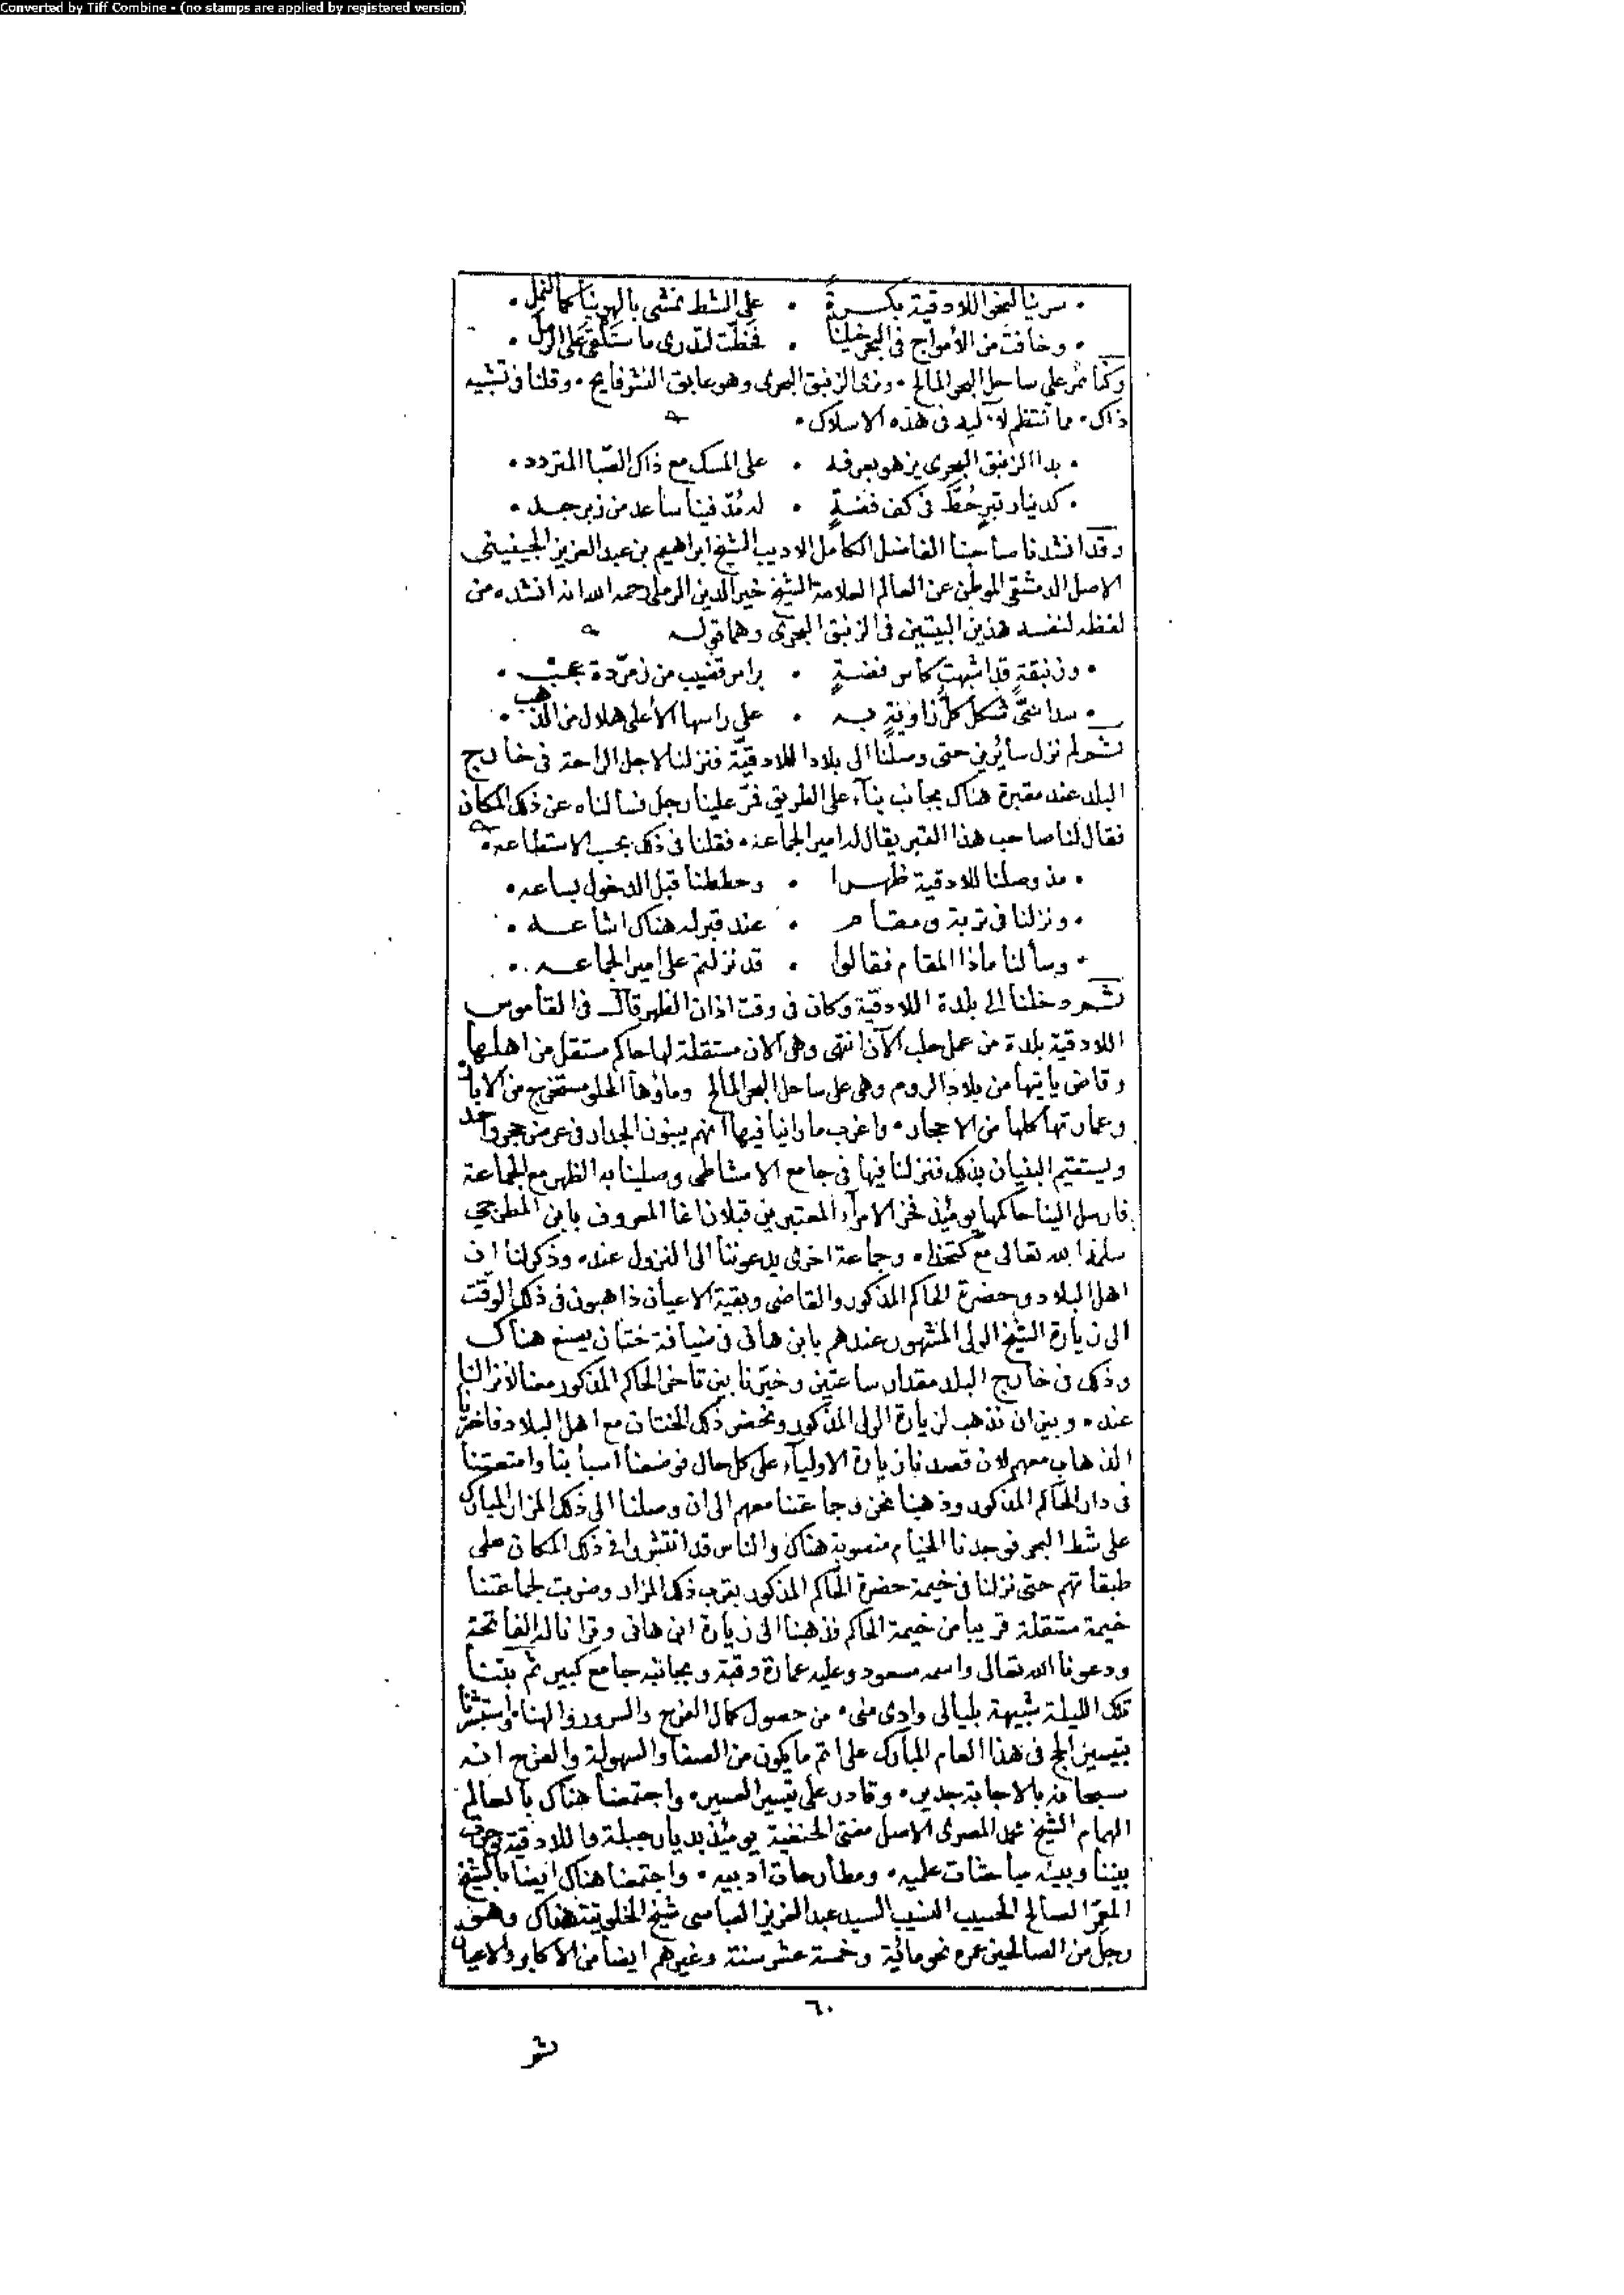 Converted by Tiff Combine - (no stamps are applied by registered version)
• سرينا لنحو اللادقية بكسرة • على الشط نمشي بالهوينا كما النمل •
• وخافت من الأمواج في البحر خيلنا • فخطّت لتدرى ما ستلقى على الرمل •
وكنا نمر على ساحل البحر المالح • ونرى الزنبق البحرى وهو عابق النشر فايح • وقلنا في تشبيه
ذاك • مما انتظم لآليه في هذه الاسلاك •
• بدا الزنبق البحرى يزهو بعرفه • على المسك مع ذاك الصبا المتردد •
• كدينار تبرٍ حُطّ في كف فضةٍ • له مُدّ فينا ساعد من زبرجد •
وقد انشدنا صاحبنا الفاضل الكامل الاديب الشيخ ابراهيم بن عبد العزيز الجينينى
الاصل الدمشقى الموطن عن العالم العلامة الشيخ خير الدين الرملى رحمه الله انه انشده من
لفظه لنفسه هذين البيتين في الزنبق البحرى وهما قوله
• وزنبقةٍ قد اشبهت كأس فضةٍ • براس قضيب من زمرّدة عجب •
• شكل كل زاوية به • على راسها الأعلى هلال من الذهب •
ثم لم نزل سائرين حتى وصلنا الى بلاد اللادقيّة فنزلنا لاجل الراحة في خارج
البلد عند مقبرة هناك بجانب بنآء على الطريق فمرّ علينا رجل فسالناه عن ذلك المكان
فقال لنا صاحب هذا القبر يقال له امير الجماعه • فقلنا في ذلك بحسب الاستطاعه •
• مذ وصلنا للادقية ظهرا • وحططنا قبل الدخول بساعه •
• ونزلنا في تربة ومقام • عند قبر له هناك اشاعه •
• وسألنا ماذا المقام فقالوا • قد نزلتم على امير الجماعه •
ثم دخلنا الى بلدة اللادقية وكان في وقت اذان الظهر قال في القاموس
اللادقية بلدة من عمل حلب الآن انتهى وهى الان مستقلة لها حاكم مستقل من اهلها
وقاض يأتيها من بلاد الروم وهى على ساحل البحر المالح وماؤها الحلو مستخرج من الابار
وعمارتها كلها من الاحجار • واغرب ما راينا فيها انهم يبنون الجدار في عرض حجر واحد
ويستقيم البنيان بذلك فنزلنا فيها في جامع الامشاطى وصلينا به الظهر مع الجماعة
فارسل الينا حاكمها يومئذ فخر الامرآء المعتبرين قبلان اغا المعروف بابن المطرجى
سلمه الله تعالى مع كتخداه • وجماعة اخرى يدعوننا الى النزول عنده • وذكر لنا ان
اهل البلاد وحضرة الحاكم المذكور والقاضى وبقية الاعيان ذاهبون في ذلك الوقت
الى زيارة الشيخ الولى المشهور عندهم بابن هانى في ضيافة ختان يصنع هناك
وذلك في خارج البلد مقدار ساعتين وخيّرنا بين تاخر الحاكم المذكور معنا لانزالنا
عنده • وبين ان نذهب لزيارة الولى المذكور ونحضر ذلك الختان مع اهل البلاد فاخترنا
الذهاب معهم لان قصدنا زيارة الاوليآء على كل حال فوضعنا اسبابنا وامتعتنا
في دار الحاكم المذكور وذهبنا نحن وجماعتنا معهم الى ان وصلنا الى ذلك المزار المبارك
على شط البحر فوجدنا الخيام منصوبة هناك والناس قد انتشروا في ذلك المكان على
طبقاتهم حتى نزلنا في خيمة حضرة الحاكم المذكور بقرب ذلك المزار وضربت لجماعتنا
خيمة مستقلة قريبا من خيمة الحاكم فذهبنا الى زيارة ابن هانى وقرانا له الفاتحة
ودعونا الله تعالى واسمه مسعود وعليه عمارة وقبة وبجانبه جامع كبير ثم بتنا
تلك الليلة شبيهة بليالى وادى منى • من حصول كمال الفرح والسرور والهنا • واستبشرنا
بتيسير الحج في هذا العام المبارك على اتم ما يكون من الصفا والسهولة والفرح انه
سبحانه بالاجابة جدير • وقادر على تيسير العسير • واجتمعنا هناك بالعالم
الهمام الشيخ محمد المصرى الاصل مفتى الحنفية يومئذ بديار جبلة واللادقية وجرت
بيننا وبينه مباحثات علميه • ومطارحات أدبيه • واجتمعنا هناك ايضا بالشيخ
المعمّر الصالح الحسيب النسيب السيد عبد العزيز العباسى شيخ الخلوتية هناك وهو
رجل من الصالحين عمره نحو مائية وخمسة عشر سنة وغيرهم ايضا من الاكابر والاعيان
٦٠
ثم